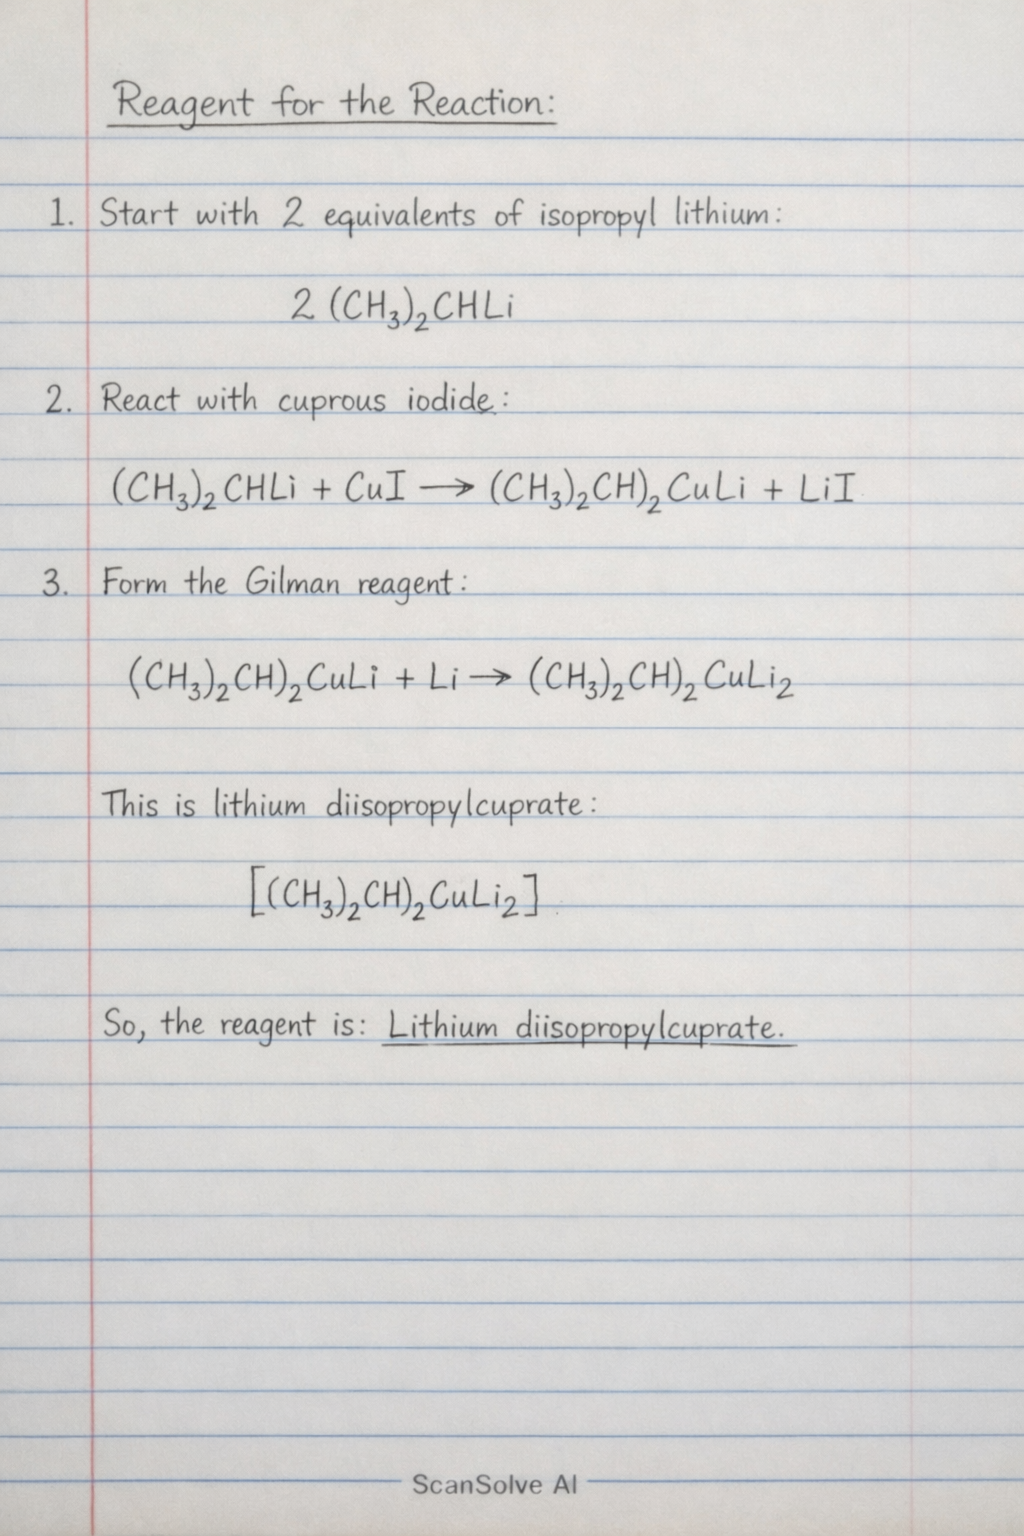 Reagent for the Reaction:
1. Start with 2 equivalents of isopropyl lithium:
2 (CH₃)₂CHLi
2. React with cuprous iodide:
(CH₃)₂CHLi + CuI → (CH₃)₂CH)₂CuLi + LiI
3. Form the Gilman reagent:
(CH₃)₂CH)₂CuLi + Li → (CH₃)₂CH)₂CuLi₂
This is lithium diisopropylcuprate:
[(CH₃)₂CH)₂CuLi₂]
So, the reagent is: Lithium diisopropylcuprate.
ScanSolve AI